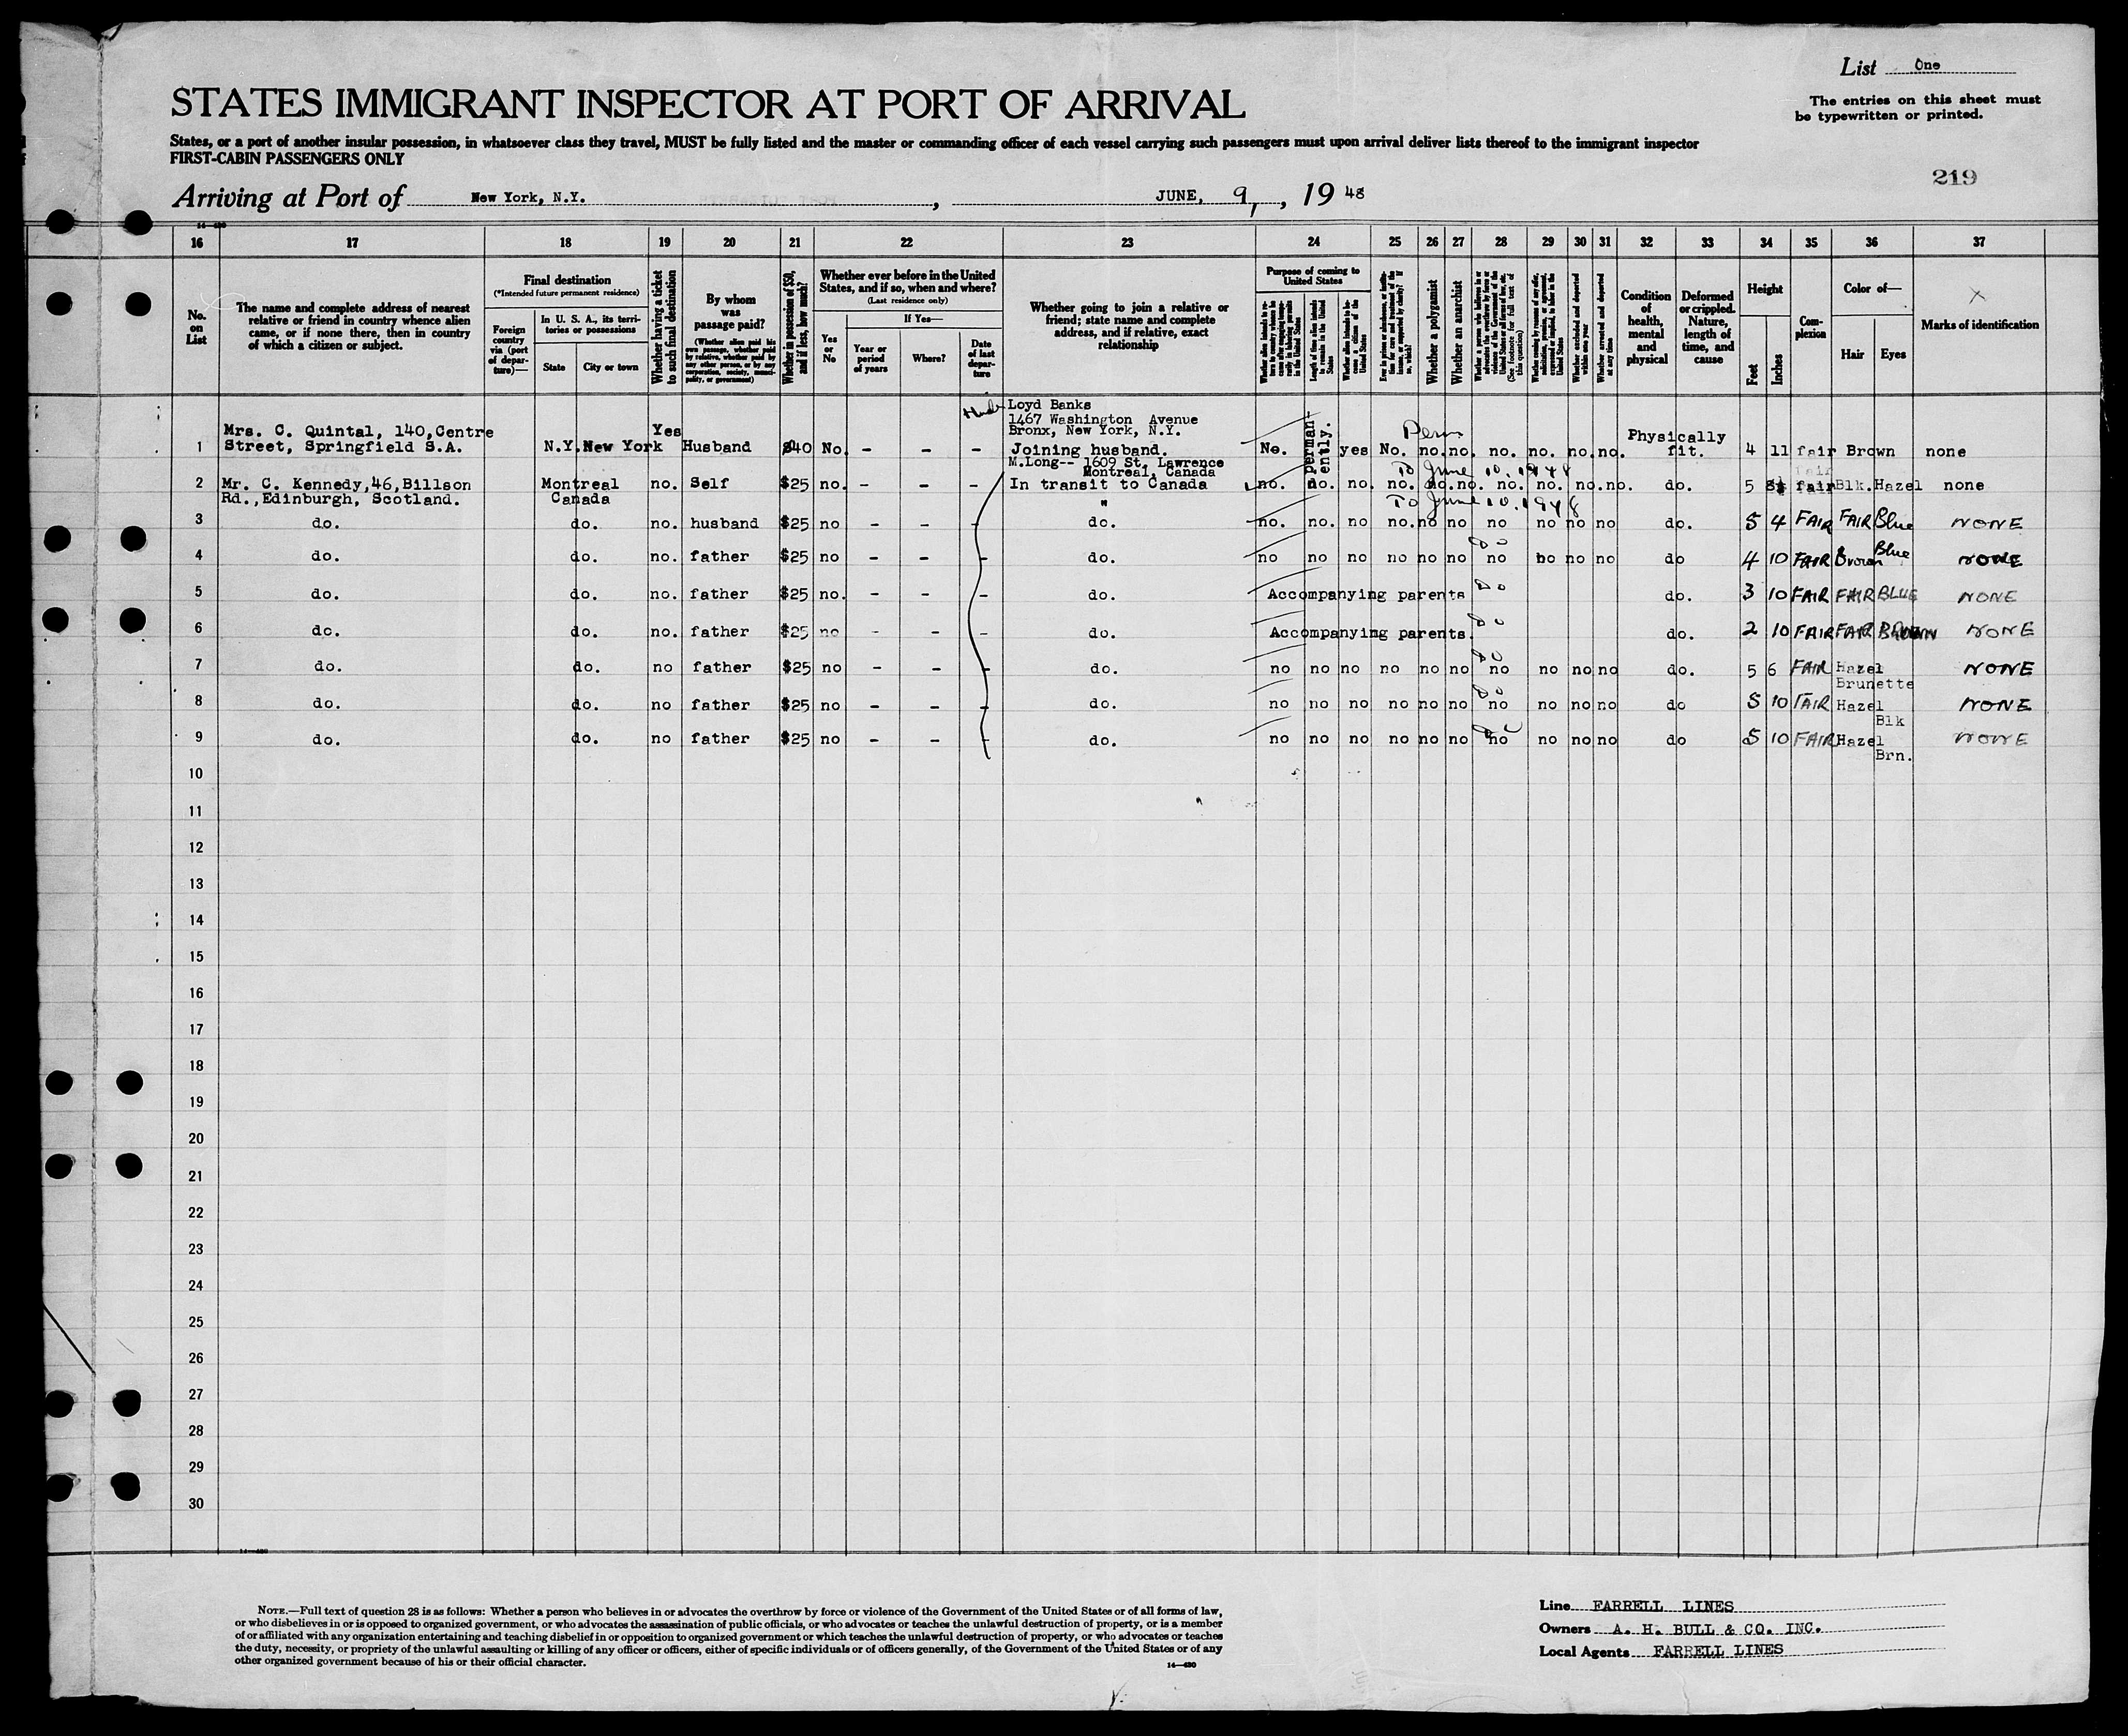 List One
The entries on this sheet must
be typewritten or printed.
STATES IMMIGRANT INSPECTOR AT PORT OF ARRIVAL
States, or a port of another insular possession, in whatsoever class they travel, MUST be fully listed and the master or commanding officer of each vessel carrying such passengers must upon arrival deliver lists thereof to the immigrant inspector
FIRST-CABIN PASSENGERS ONLY
219
Arriving at Port of New York, N.Y. , JUNE, 9, , 19 48
16 17 18 19 20 21 22 23 24 25 26 27 28 29 30 31 32 33 34 35 36 37
No.
on
List
The name and complete address of nearest
relative or friend in country whence alien
came, or if none there, then in country
of which a citizen or subject.
Final destination
(*Intended future permanent residence)
Foreign
country
via (port
of depar-
ture)—
In U. S. A., its terri-
tories or possessions
State
City or town
Whether having a ticket
to such final destination
By whom
was
passage paid?
(Whether alien paid his
own passage, whether paid
by relative, whether paid by
any other person, or by any
corporation, society, munici-
pality, or government)
Whether in possession of $50,
and if less, how much?
Whether ever before in the United
States, and if so, when and where?
(Last residence only)
Yes
or
No
If Yes—
Year or
period
of years
Where?
Date
of last
depar-
ture
Whether going to join a relative or
friend; state name and complete
address, and if relative, exact
relationship
Purpose of coming to
United States
Whether a polygamist
Whether an anarchist
Whether arrested and deported
at any time
Condition
of
health,
mental
and
physical
Deformed
or crippled.
Nature,
length of
time, and
cause
Height
Feet
Inches
Com-
plexion
Color of—
Hair
Eyes
Marks of identification
Loyd Banks
1467 Washington Avenue
Bronx, New York, N.Y.
Mrs. C. Quintal, 140,Centre Yes Physically
1 Street, Springfield S.A. N.Y. New York Husband $40 No. - - - Joining husband. No. perman-ently. yes No. no. no. no. no. no. no. fit. 4 11 fair Brown none
M.Long-- 1609 St. Lawrence
Montreal, Canada To June 10. 1948
2 Mr. C. Kennedy,46,Billson Montreal no. Self $25 no. - - - In transit to Canada no. no. no. no. no. no. no. no. no. no. do. 5 fair Blk. Hazel none
Rd.,Edinburgh, Scotland. Canada " To June 10. 1948
3 do. do. no. husband $25 no - - - do. no. no. no no. no no no no no no do. 5 4 FAIR FAIR Blue NONE
4 do. do. no. father $25 no - - - do. no no no no no no no no no no do 4 10 FAIR Brown Blue NONE
5 do. do. no. father $25 no. - - - do. Accompanying parents do. 3 10 FAIR FAIR BLUE NONE
6 do. do. no. father $25 no - - - do. Accompanying parents. do. 2 10 FAIR FAIR BROWN NONE
7 do. do. no father $25 no - - - do. no no no no no no no no no no do. 5 6 FAIR Hazel NONE
Brunette
8 do. do. no father $25 no - - - do. no no no no no no no no no no do 5 10 FAIR Hazel NONE
Blk
9 do. do. no father $25 no - - - do. no no no no no no no no no no do 5 10 FAIR Hazel NONE
Brn.
10
11
12
13
14
15
16
17
18
19
20
21
22
23
24
25
26
27
28
29
30
NOTE.—Full text of question 28 is as follows: Whether a person who believes in or advocates the overthrow by force or violence of the Government of the United States or of all forms of law,
or who disbelieves in or is opposed to organized government, or who advocates the assassination of public officials, or who advocates or teaches the unlawful destruction of property, or is a member
of or affiliated with any organization entertaining and teaching disbelief in or opposition to organized government or which teaches the unlawful destruction of property, or who advocates or teaches
the duty, necessity, or propriety of the unlawful assaulting or killing of any officer or officers, either of specific individuals or of officers generally, of the Government of the United States or of any
other organized government because of his or their official character.
14—430
Line FARRELL LINES
Owners A. H. BULL & CO. INC.
Local Agents FARRELL LINES